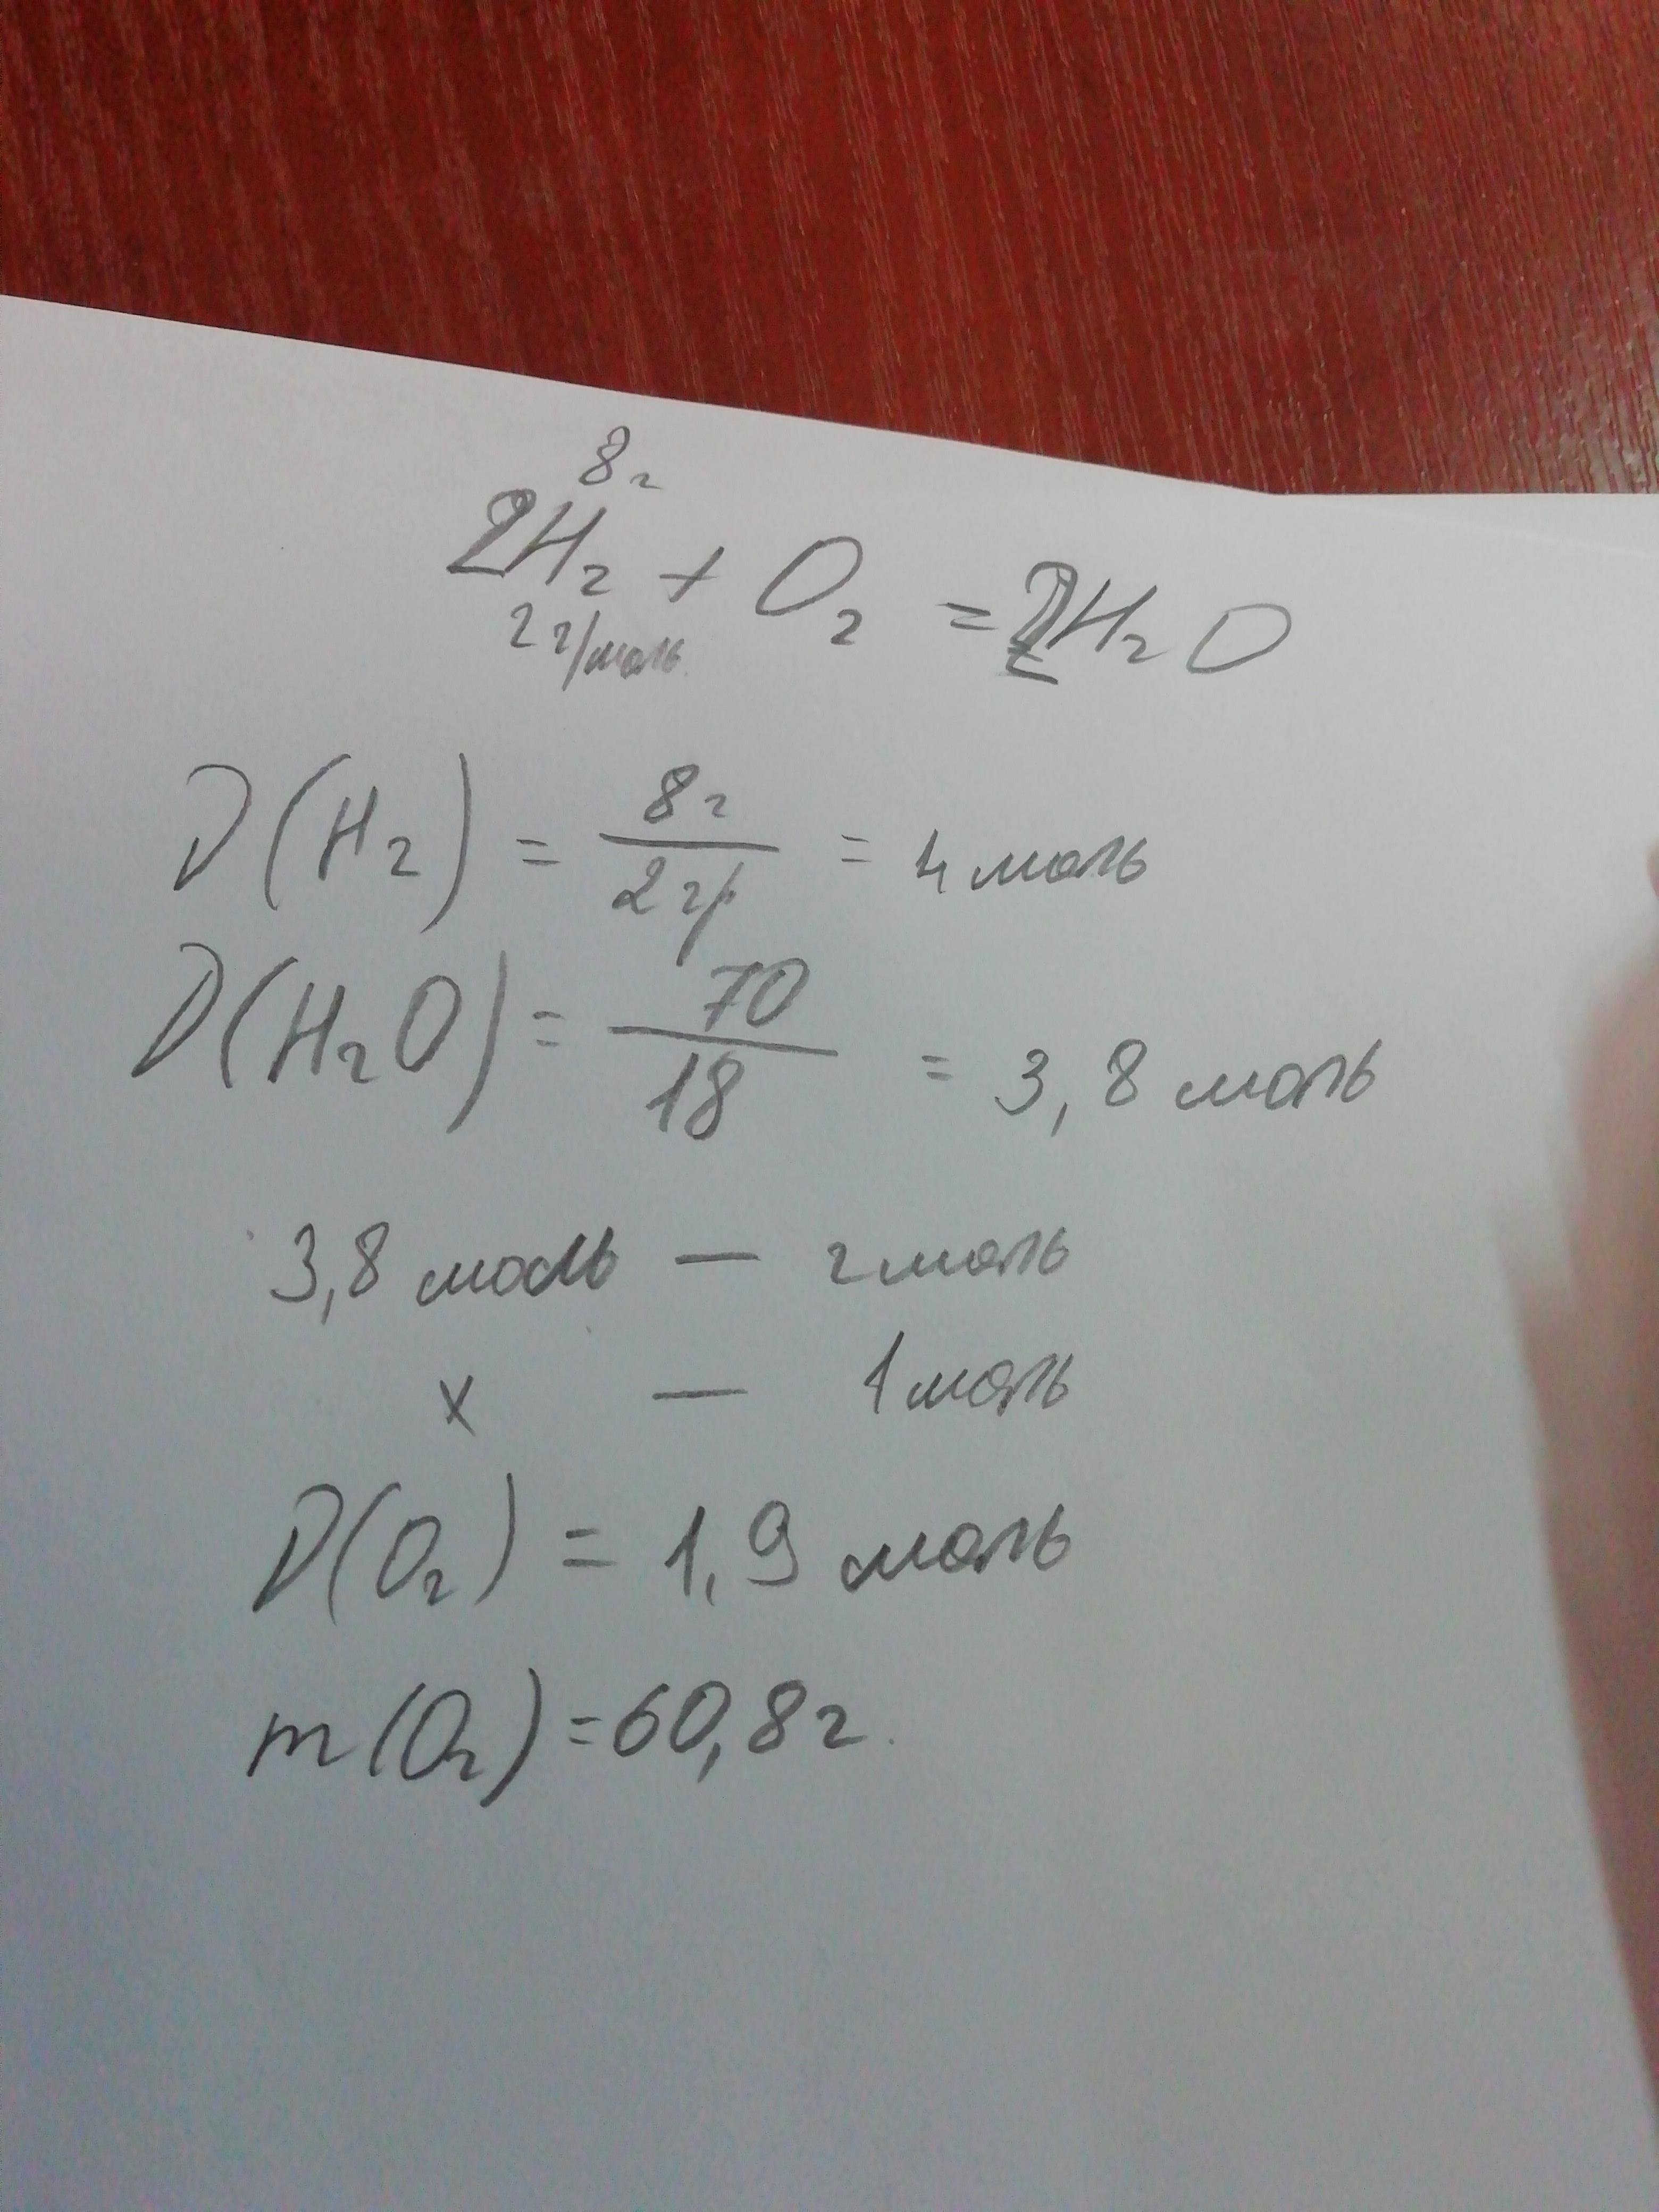 8г
2H₂ + O₂ = 2H₂O
2 г/моль
D(H₂) = 8г / 2г/ = 4 моль
D(H₂O) = 70 / 18 = 3,8 моль
3,8 моль — 2 моль
x — 1 моль
D(O₂) = 1,9 моль
m(O₂) = 60,8 г.